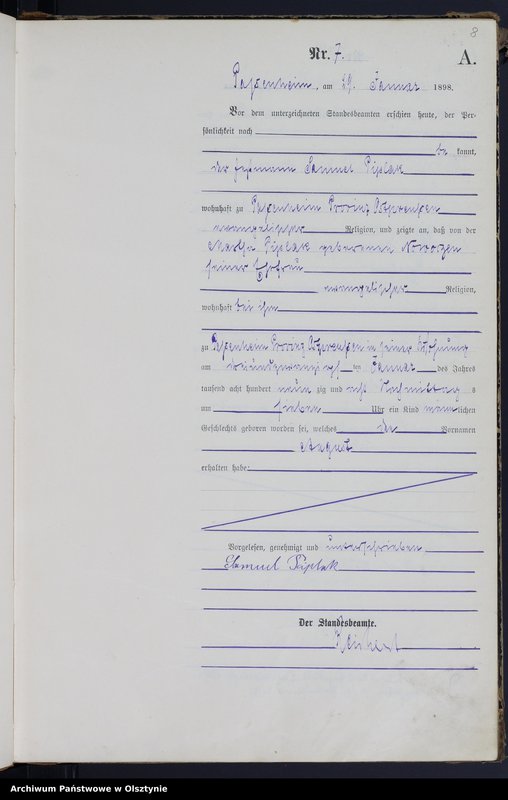 8
Nr. 7.
A.
Passenheim, am 29. Januar 1898.
Vor dem unterzeichneten Standesbeamten erschien heute, der Per-
sönlichkeit nach
be kannt,
der Samuel Piplak
wohnhaft zu Passenheim Provinz Ostpreußen
evangelischer Religion, und zeigte an, daß von der
Piplak geborenen
seiner Ehefrau
evangelischer Religion,
wohnhaft bei ihm
zu Passenheim Provinz Ostpreußen in seiner Wohnung
am ten Januar des Jahres
tausend acht hundert neun zig und acht Nachmittag s
um sieben Uhr ein Kind männlichen
Geschlechts geboren worden sei, welches den Vornamen
August
erhalten habe.
Vorgelesen, genehmigt und unterschrieben
Samuel Piplak
Der Standesbeamte.
Archiwum Państwowe w Olsztynie